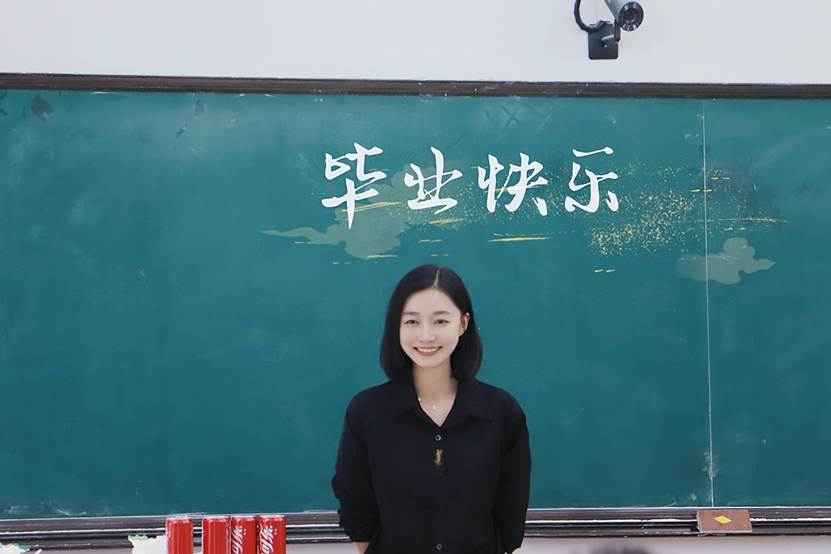 毕业快乐